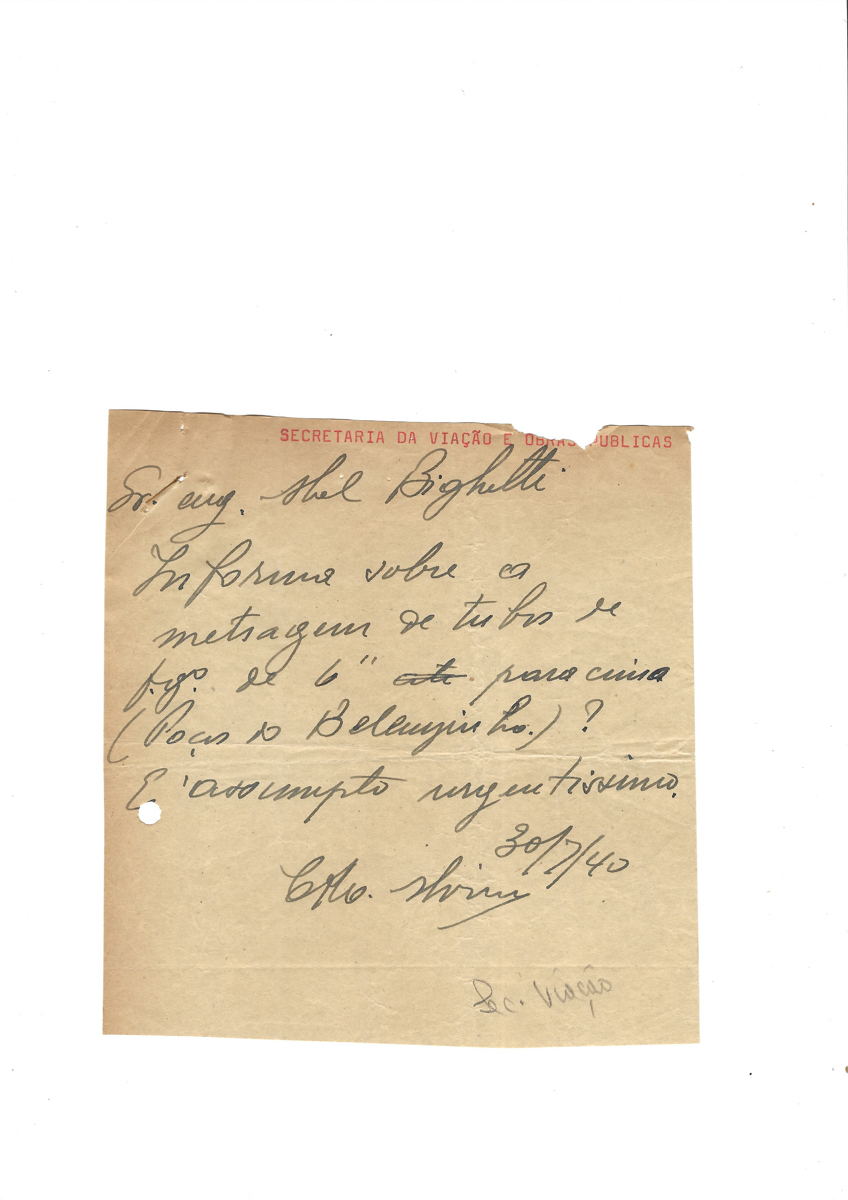 SECRETARIA DA VIAÇÃO E OBRAS PUBLICAS
Sr. eng. Abel Bighetti
Informe sobre a
metragem de tubos de
f.gº. de 6" até para cima
(Poços do Belenzinho.) ?
E' assumpto urgentissimo.
30/7/40
Sec. Viação